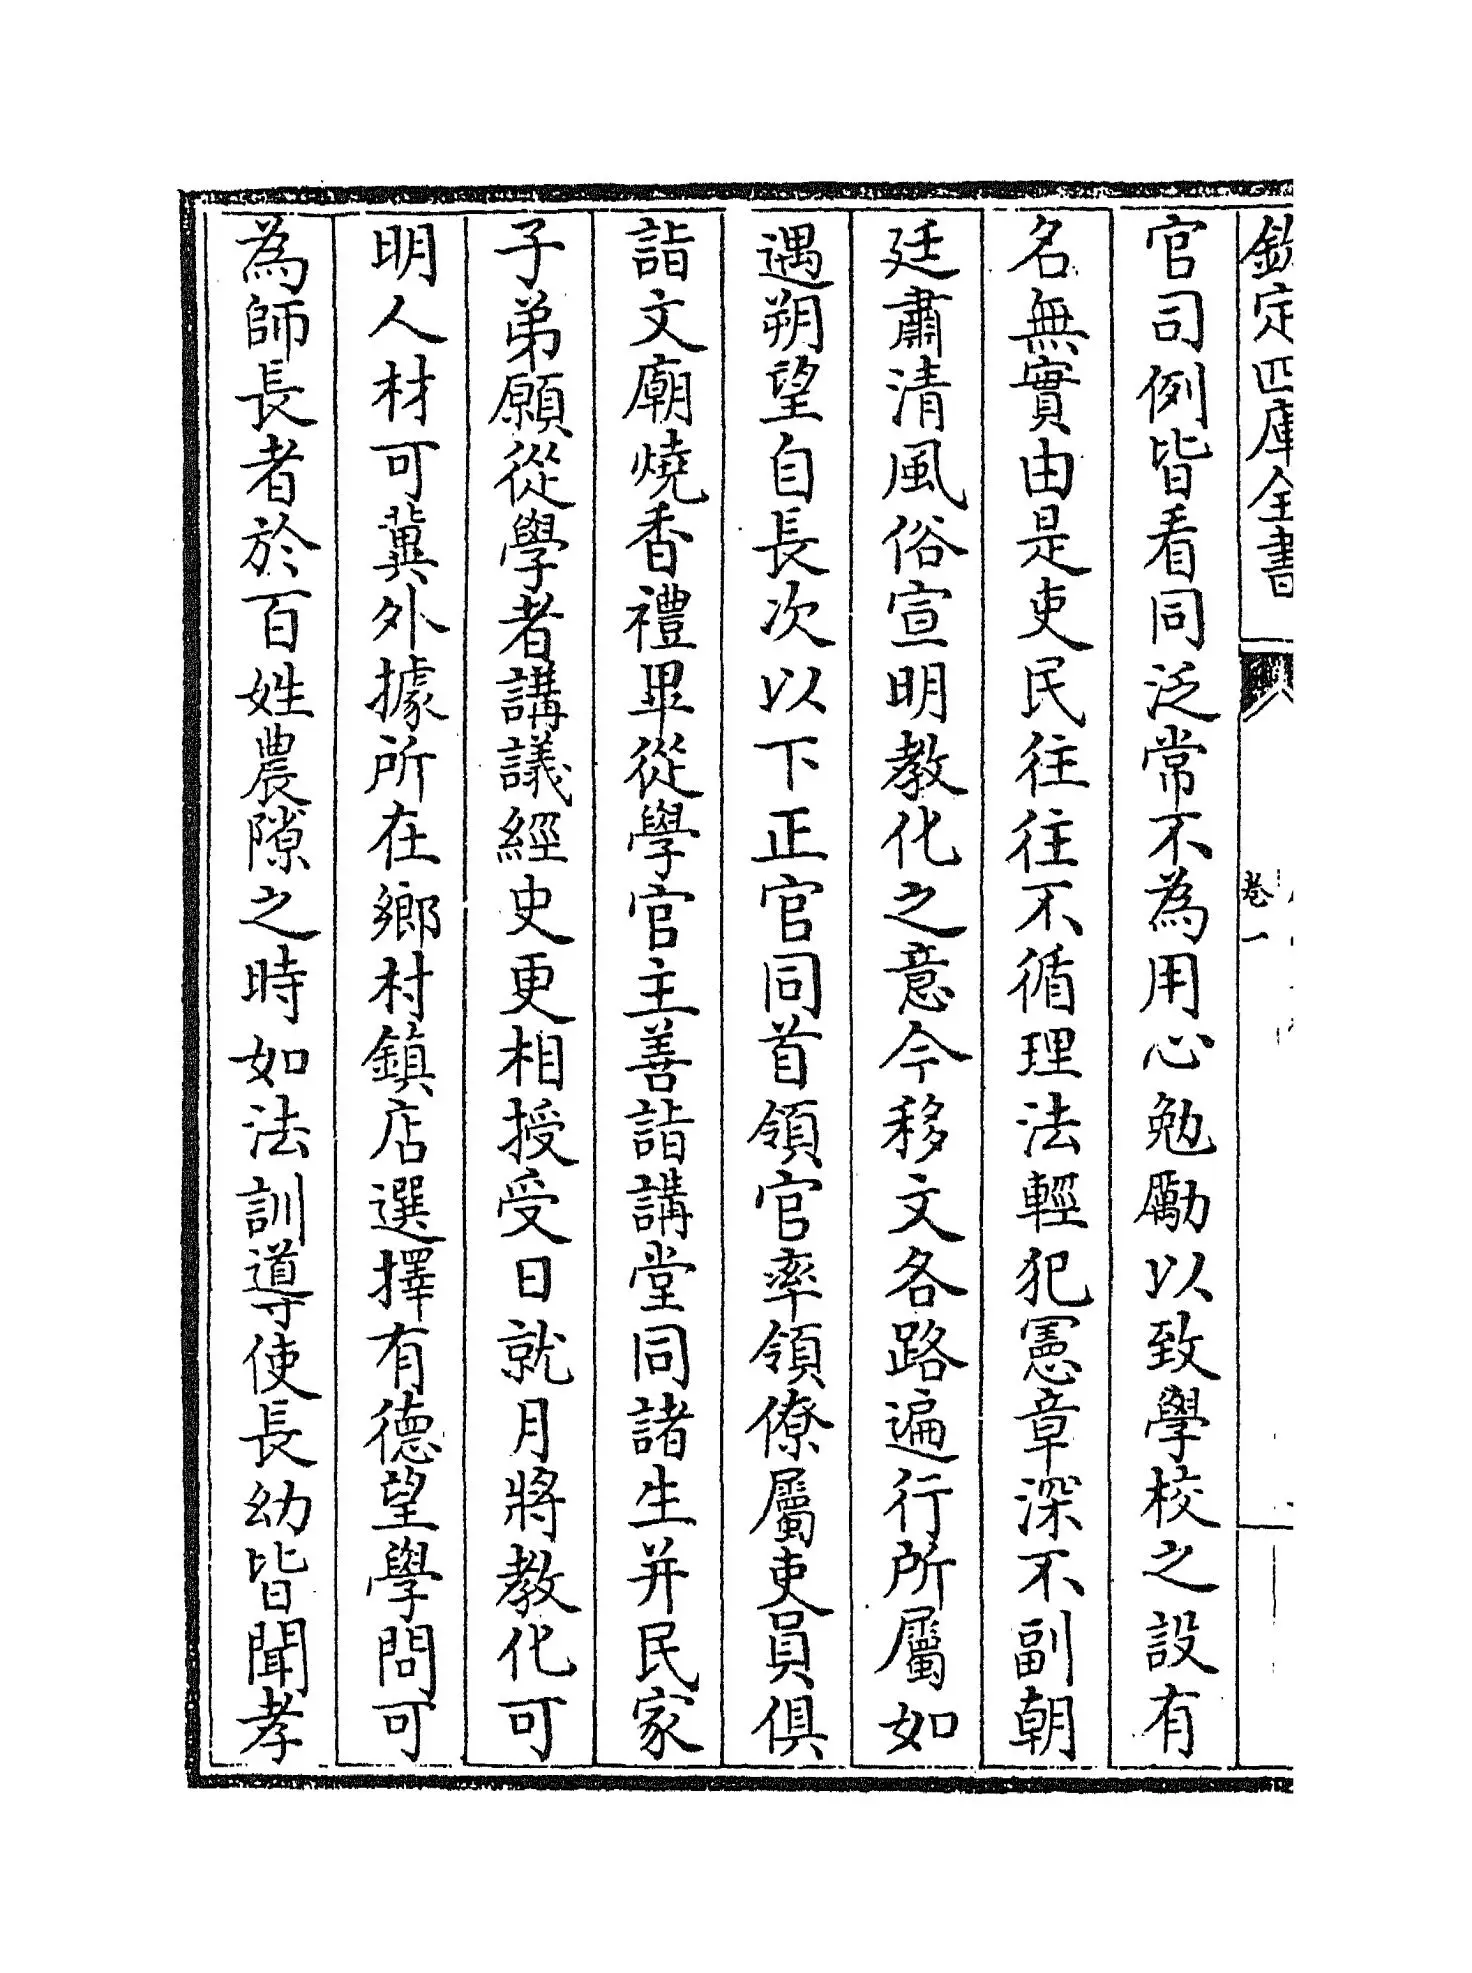 欽定四庫全書
卷一
官司例皆看同泛常不為用心勉勵以致學校之設有
名無實由是吏民往往不循理法輕犯憲章深不副朝
廷肅清風俗宣明教化之意今移文各路遍行所屬如
遇朔望自長次以下正官同首領官率領僚屬吏員俱
詣文廟燒香禮畢從學官主善詣講堂同諸生并民家
子弟願從學者講議經史更相授受日就月將教化可
明人材可冀外據所在鄉村鎮店選擇有德望學問可
為師長者於百姓農隙之時如法訓導使長幼皆聞孝